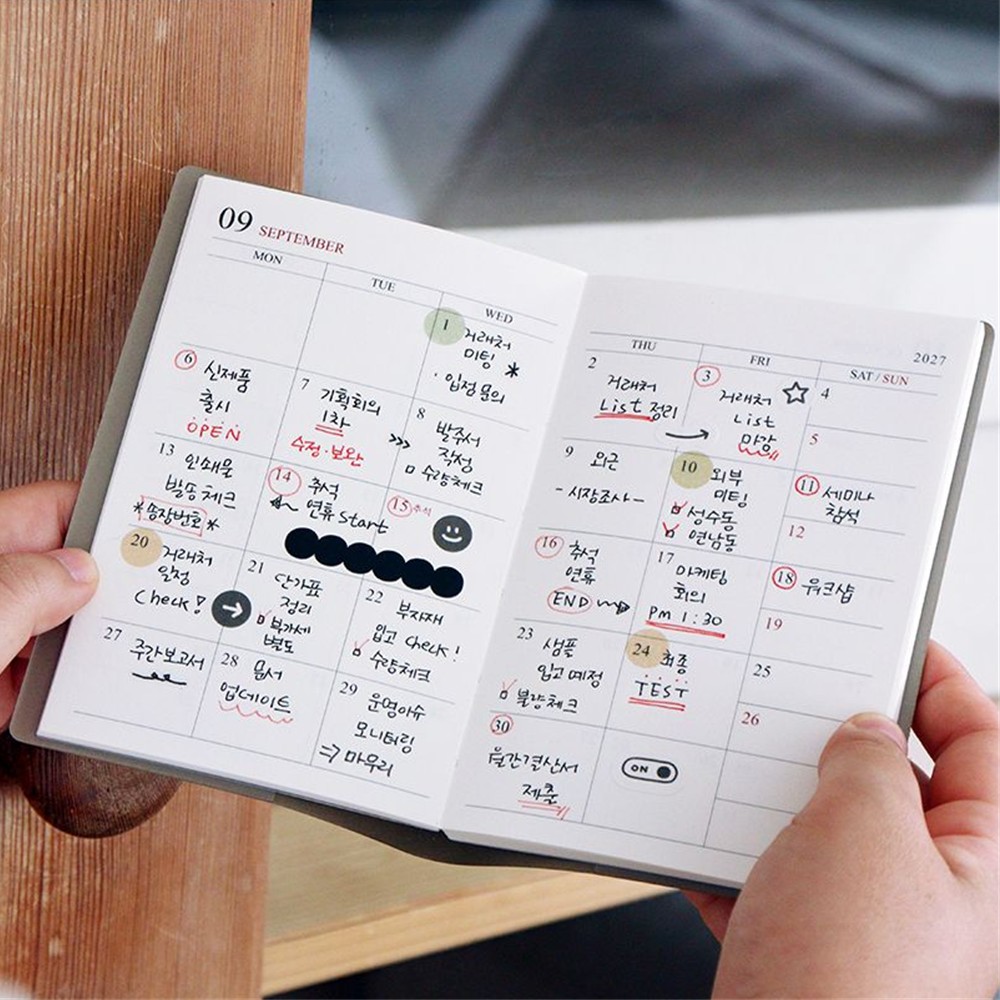 09 SEPTEMBER
MON
TUE
WED
1 거래처
미팅 *
· 입점 문의
6 신제품
출시
OPEN
7 기획회의
1차
수정·보완
>>>
8
발주서
작성
□ 수량체크
13 인쇄물
발송 체크
*송장번호*
14 추석
연휴 start
15 추석
20 거래처
일정
check!
21
단가표
정리
□ 부가세
별도
22
부자재
입고 check!
□ 수량체크
27 주간보고서
28 문서
업데이트
29
운영이슈
모니터링
⇒ 마무리
2027
THU
FRI
SAT / SUN
2
거래처
List 정리
3
거래처
List
마감
4
5
9 외근
- 시장조사 -
10 외부
미팅
성수동
연남동
11 세미나
참석
12
16 추석
연휴
END
17
마케팅
회의
Pm 1:30
18 워크샵
19
23
샘플
입고예정
□ 불량체크
24 최종
TEST
25
26
30
월간결산서
제출
ON